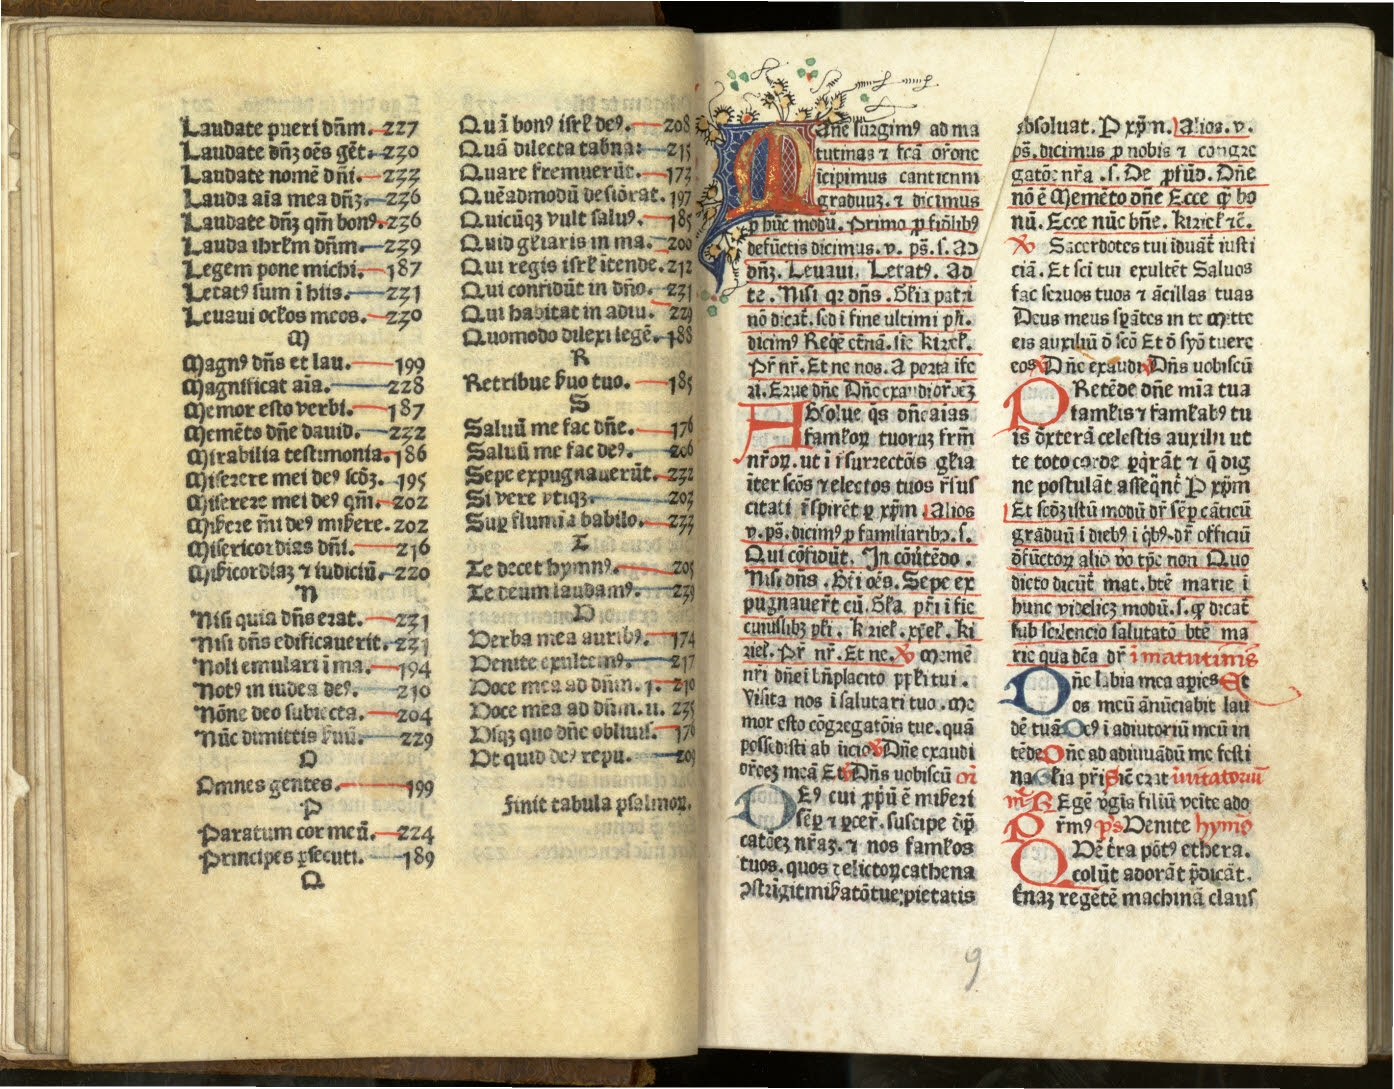 Laudate pueri dñm. 227
Laudate dñʒ oēs gēt. 230
Laudate nomē dñi. 233
Lauda aīa mea dñʒ. 236
Laudate dñʒ qm̄ bonꝰ. 236
Lauda ihrłm dñm. 239
Legem pone michi. 187
Letatꝰ sum ī hiis. 231
Leuaui ocłos meos. 230
M
Magnꝰ dñs et lau. 199
Magnificat aīa. 228
Memor esto verbi. 187
Memēto dñe dauid. 232
Mirabilia testimonia. 186
Miserere mei deꝰ scōʒ. 195
Miserere mei deꝰ qm̄. 202
Mißere m̄i deꝰ mißere. 202
Misericordias dñi. 216
Mißicordiaʒ ⁊ iudiciū. 220
N
Nisi quia dñs erat. 231
Nisi dñs edificauerit. 231
Noli emulari ī ma. 194
Notꝰ in iudea deꝰ. 210
Nōne deo subiecta. 204
Nūc dimittis ẜuū. 229
O
Omnes gentes. 199
P
Paratum cor meū. 224
Principes ꝑsecuti. 189
Q
Quā bonꝰ isrł deꝰ. 208
Quā dilecta tabña: 215
Quare fremuerūt. 173
Quēadmodū desiđrat. 197
Quicūqʒ vult saluꝰ. 185
Quid głiaris in ma. 200
Qui regis isrł ītende. 212
Qui confidūt in dño. 231
Qui habitat in adiu. 229
Quomodo dilexi legē. 188
R
Retribue ẜuo tuo. 185
S
Saluū me fac dñe. 176
Saluū me fac deꝰ. 206
Sepe expugnauerūt. 232
Si vere vtiqʒ. 203
Suꝑ flumīa babilo. 233
T
Te decet hymnꝰ. 205
Te deum laudamꝰ. 239
V
Verba mea auribꝰ. 174
Venite exultemꝰ. 217
Voce mea ad dñm. j. 210
Voce mea ad dñm. ii. 235
Vsqʒ quo dñe obliuis. 176
Vt quid deꝰ repu. 209
Finit tabula psalmoꝝ.
Mane surgimꝰ ad ma
tutinas ⁊ fcā or̄one
īcipimus canticum
graduuʒ. ⁊ dicimus
ꝑ hūc modū. Primo ꝓ fidłibꝰ
defūctis dicimus. v. pš. s. Ad
dñʒ. Leuaui. Letatꝰ. Ad
te. Nisi qꝛ dñs. Głia patri
nō dicat̄. sed ī fine ultimi pš.
dicimꝰ Reqē et̄nā. sic kiriel.
Pr̄ nr̄. Et ne nos. A porta īfe
ri. Erue dñe Dñe exaudi or̄oēʒ
Absolue q̄s dñe aīas
famłoꝝ tuoruʒ frm̄
nr̄oꝝ. ut ī r̄surrectōis głia
īter scōs ⁊ electos tuos r̄sus
citati r̄spirēt ꝑ xp̄m. Alios
v. pš. dicimꝰ ꝓ familiaribꝰ. s.
Qui cōfidūt. In cōūtēdo.
Nisi dñs. Bt̄i oēs. Sepe ex
pugnauer̄t cū. Głia pr̄i ī fie
cuiuslibʒ pš. kiriel. xp̄el. ki
riel. Pr̄ nr̄. Et ne. v Memē
nr̄i dñe ī bñplacito pp̄łi tui.
Visita nos ī salutari tuo. Me
mor esto cōgregatōis tue. quā
possedisti ab īicio v Dñe exaudi
or̄oeʒ meā Et v Dñs uobiscū or̄
Deꝰ cui ꝓp̄ū ē mißeri
sēꝑ ⁊ ꝑcer̄. suscipe dꝓ̄
catōeʒ nr̄aʒ. ⁊ nos famłos
tuos. quos delictoꝝ cathena
ↄstrīgit mißatō tue pietatis
absoluat. P xp̄m. Alios. v.
pš. dicimus ꝓ nobis ⁊ congre
gatōe nr̄a. s. De ꝓfūd. Dñe
nō ē Memēto dñe Ecce q̄ bo
nū. Ecce nūc bñe. kiriel ⁊c̄.
v Sacerdotes tui īduāt̄ iusti
ciā. Et sci tui exultēt Saluos
fac seruos tuos ⁊ ācillas tuas
Deus meus sꝑātes in te Mitte
eis auxiliū đ scō Et đ syō tuere
eos v Dñe exaudi v Dñs uobiscū
PRetēde dñe mīa tua
famłis ⁊ famłabꝰ tu
is dexterā celestis auxilii ut
te toto corde ꝑq̄rāt ⁊ q̄ dig
ne postulāt asseq̄nt̄ P xp̄m
Et scđʒ istū modū dr̄ sēꝑ cāticū
graduū ī diebꝰ ī q̄bꝰ. dr̄ officiū
đfūctoꝝ alio vo tp̄e non Quo
dicto dicūt̄ mat. bt̄e marie ī
hunc videlicʒ modū. s. q̄ dicat̄
sub scilencio salutatō bt̄e ma
rie qua dc̄a dr̄ ī matutinis
Dñe labia mea aꝑies Et
os meū ānūciabit lau
dē tuā Deꝰ ī adiutoriū meū in
tēde Dñe ad adiuuādū me festi
na Głia pr̄i Sic̄ erat inuitatoriū
m̄ REgē v̄gīs filiū veīte ado
rm̄ꝰ pš Venite hymꝰ
QDē t̄ra pōtꝰ ethera.
colūt adorāt p̄dicāt.
t̄naʒ regētē machinā claus
9